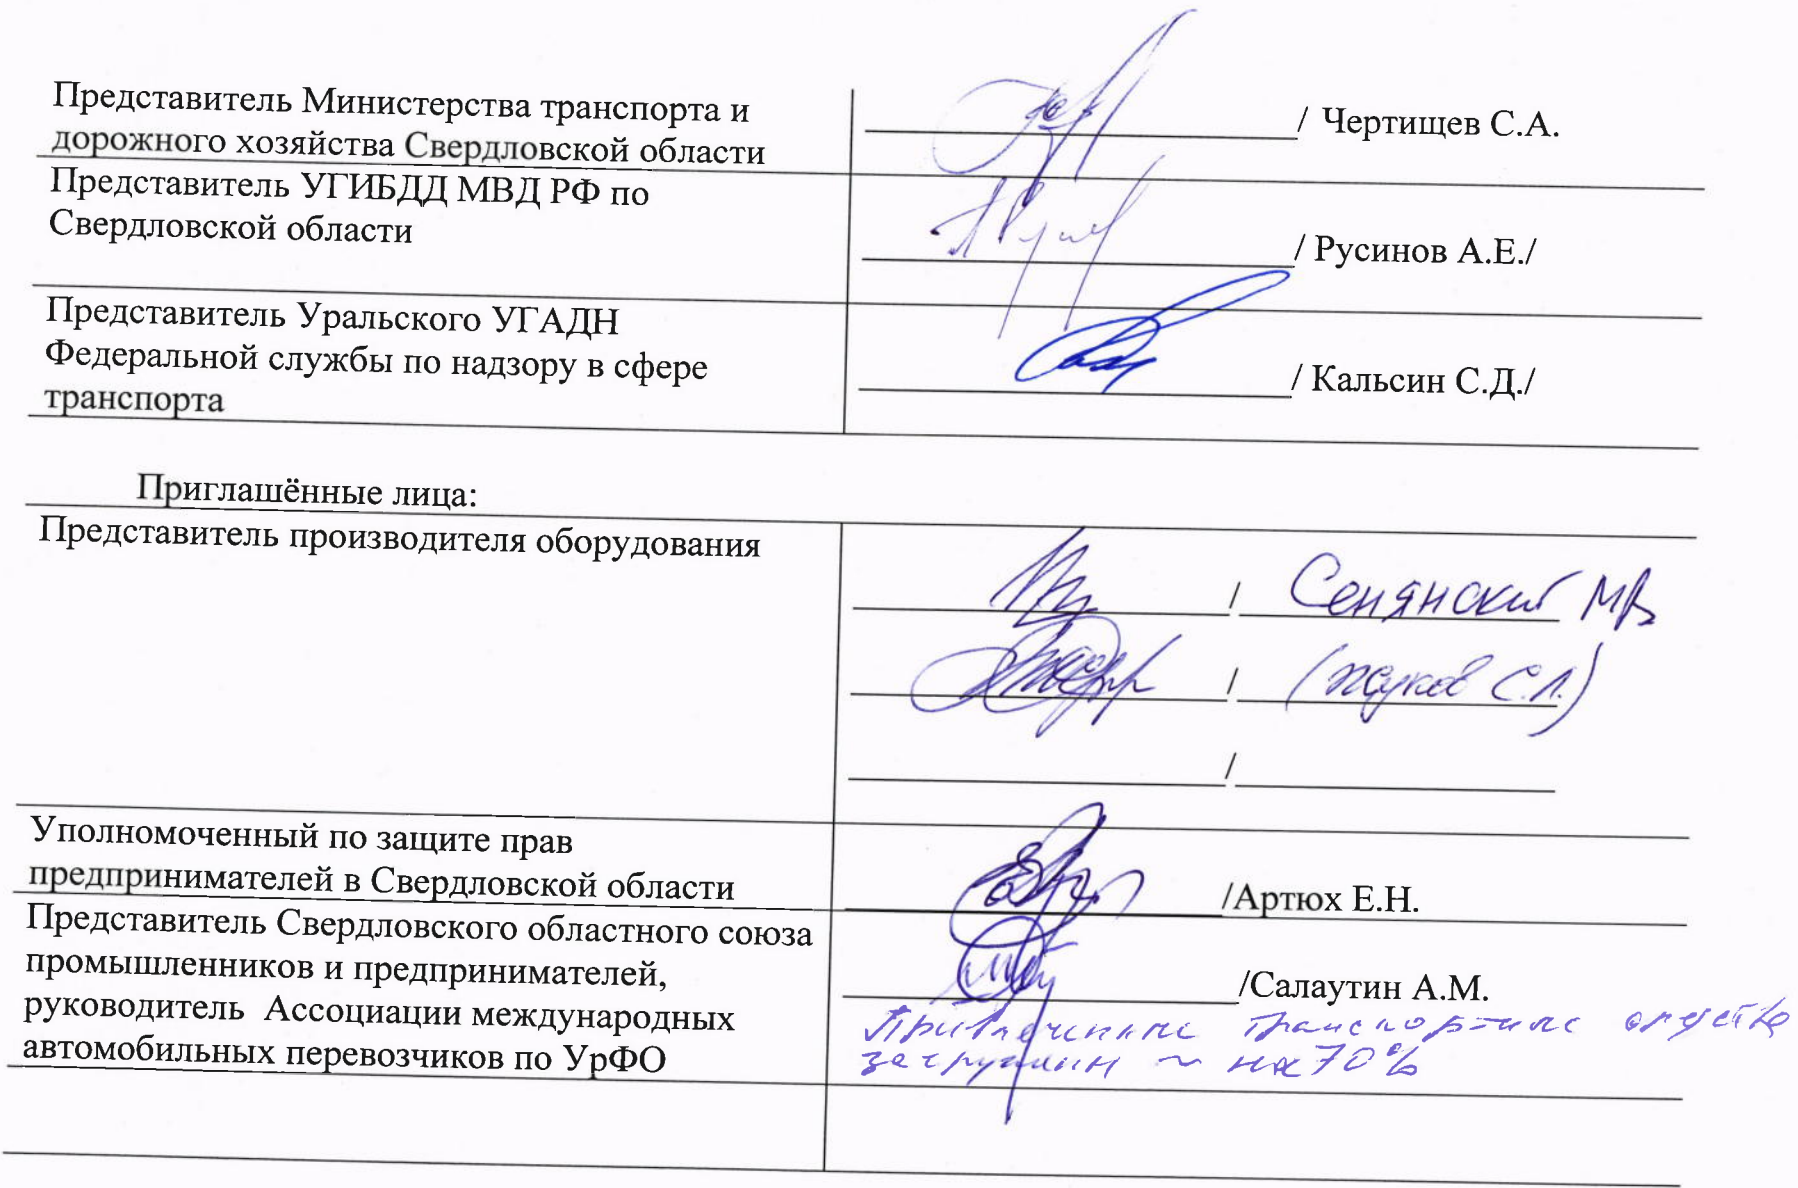 Представитель Министерства транспорта и
дорожного хозяйства Свердловской области
/ Чертищев С.А.
Представитель УГИБДД МВД РФ по
Свердловской области
/ Русинов А.Е./
Представитель Уральского УГАДН
Федеральной службы по надзору в сфере
транспорта
/ Кальсин С.Д./
Приглашённые лица:
Представитель производителя оборудования
/ Сенянский МВ
/ (Жуков С.Л.)
/
Уполномоченный по защите прав
предпринимателей в Свердловской области
/Артюх Е.Н.
Представитель Свердловского областного союза
промышленников и предпринимателей,
руководитель Ассоциации международных
автомобильных перевозчиков по УрФО
/Салаутин А.М.
транспортные средства
~ на 70%